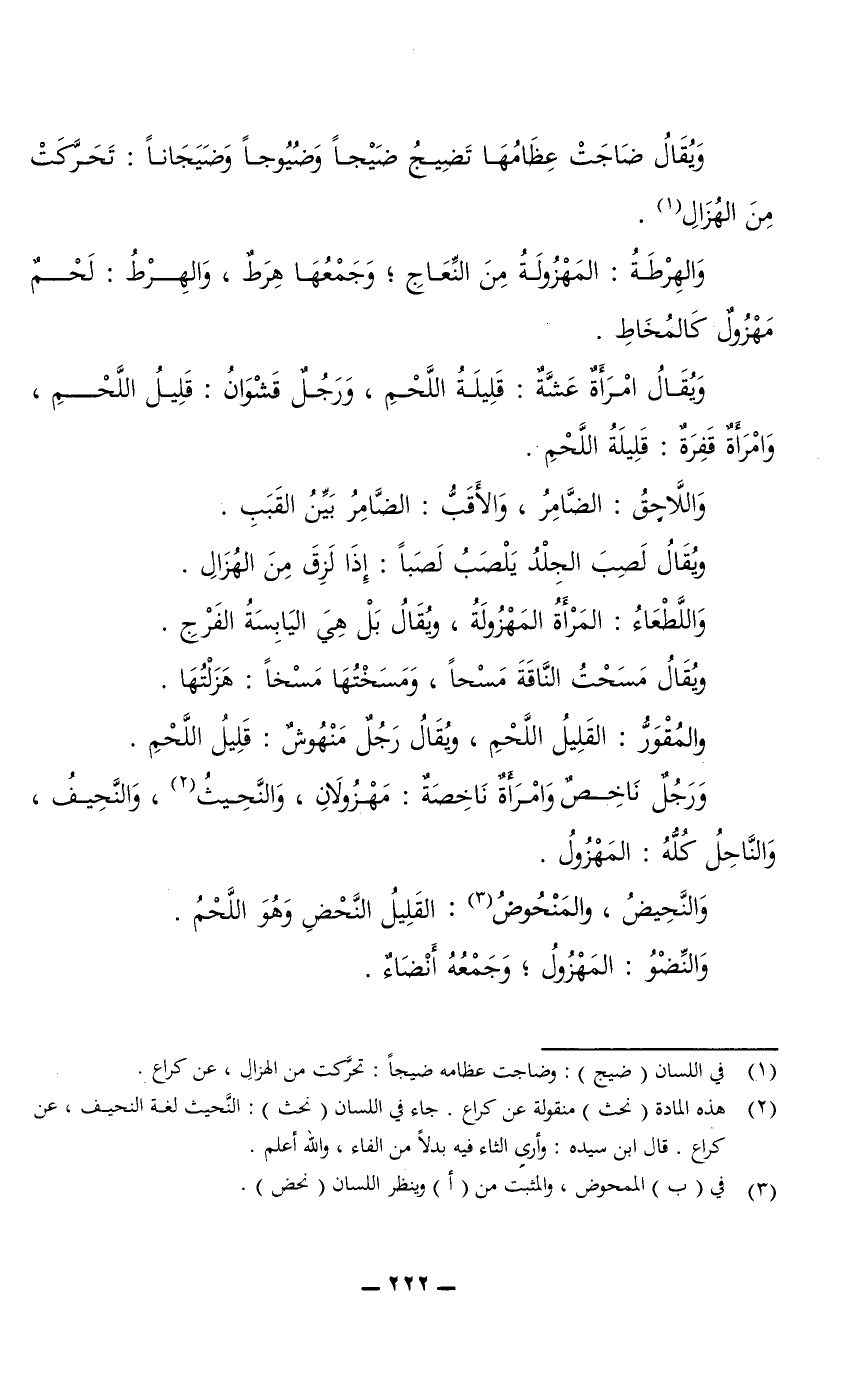 وَيُقَالُ ضَاجَتْ عِظَامُهَا تَضِيجُ ضَيْجاً وَضُيُوجاً وَضَيَجَاناً : تَحَرَّكَتْ
مِنَ الهُزَالِ(١) .
وَالهِرْطَةُ : المَهْزُولَةُ مِنَ النِّعَاجِ ؛ وَجَمْعُهَا هِرَطٌ ، وَالهِرْطُ : لَحْمٌ
مَهْزُولٌ كَالمُخَاطِ .
وَيُقَالُ امْرَأَةٌ عَشَّةٌ : قَلِيلَةُ اللَّحْمِ ، وَرَجُلٌ قَشْوَانُ : قَلِيلُ اللَّحْمِ ،
وَامْرَأَةٌ قَفِرَةٌ : قَلِيلَةُ اللَّحْمِ .
وَاللَّاحِقُ : الضَّامِرُ ، وَالأَقَبُّ : الضَّامِرُ بَيِّنُ القَبَبِ .
ويُقَالُ لَصِبَ الجِلْدُ يَلْصَبُ لَصَباً : إِذَا لَزِقَ مِنَ الهُزَالِ .
وَاللَّطْعَاءُ : المَرْأَةُ المَهْزُولَةُ ، ويُقَالُ بَلْ هِيَ اليَابِسَةُ الفَرْجِ .
ويُقَالُ مَسَحْتُ النَّاقَةَ مَسْحاً ، وَمَسَخْتُهَا مَسْخاً : هَزَلْتُهَا .
والمُقْوَرُّ : القَلِيلُ اللَّحْمِ ، ويُقَالُ رَجُلٌ مَنْهُوشٌ : قَلِيلُ اللَّحْمِ .
وَرَجُلٌ نَاخِصٌ وَامْرَأَةٌ نَاخِصَةٌ : مَهْزُولَانِ ، وَالنَّحِيثُ(٢) ، وَالنَّحِيفُ ،
وَالنَّاحِلُ كُلُّهُ : المَهْزُولُ .
وَالنَّحِيضُ ، والمَنْحُوضُ(٣) : القَلِيلُ النَّحْضِ وَهُوَ اللَّحْمُ .
وَالنِّضْوُ : المَهْزُولُ ؛ وَجَمْعُهُ أَنْضَاءٌ .
(١) في اللسان ( ضيج ) : وضاجت عظامه ضيجاً : تحرَّكت من الهزال ، عن كراع .
(٢) هذه المادة ( نحث ) منقولة عن كراع . جاء في اللسان ( نحث ) : النَّحيث لغة النحيف ، عن
كراع . قال ابن سيده : وأرى الثاء فيه بدلاً من الفاء ، والله أعلم .
(٣) في ( ب ) الممحوض ، والمثبت من ( أ ) وينظر اللسان ( نحض ) .
— ٢٢٢ —